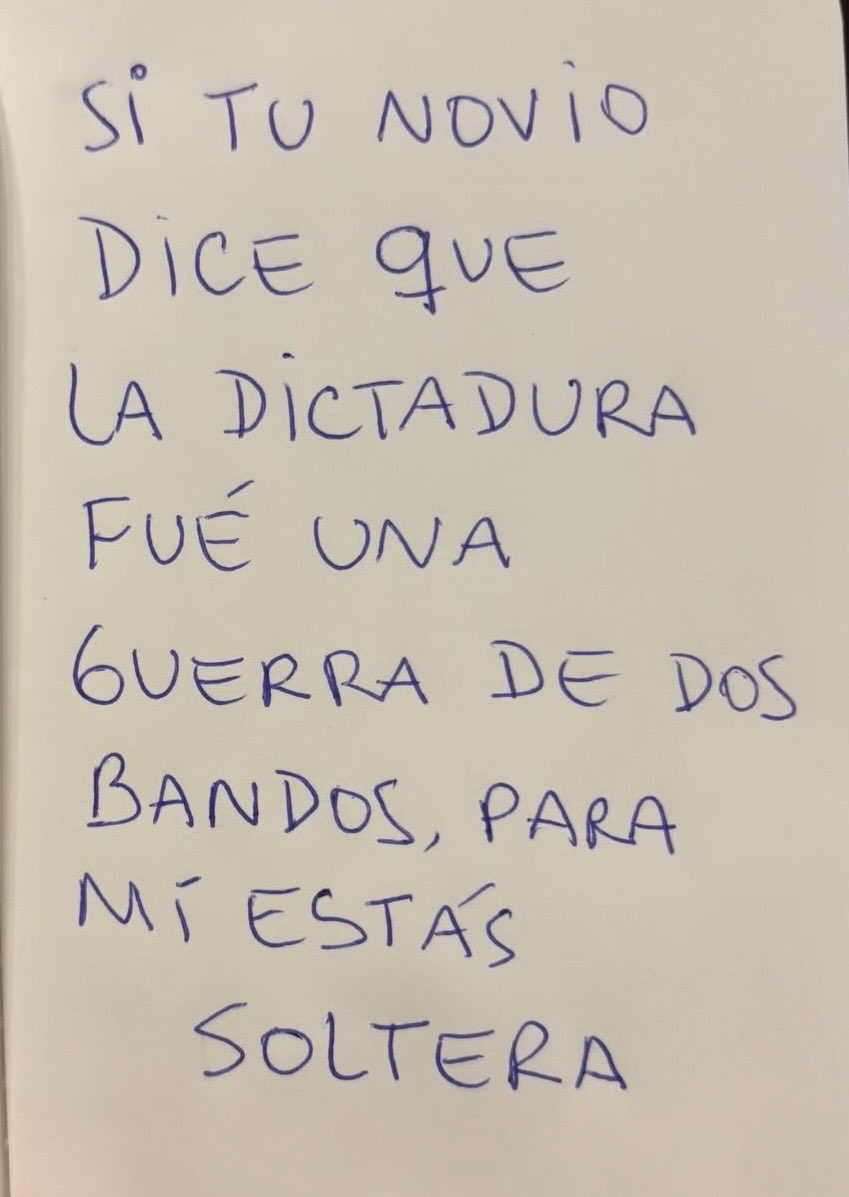 Si TU NOViO
DiCE qUE
LA DiCTADURA
FUÉ UNA
GUERRA DE DOS
BANDOS, PARA
MÍ ESTÁS
SOLTERA